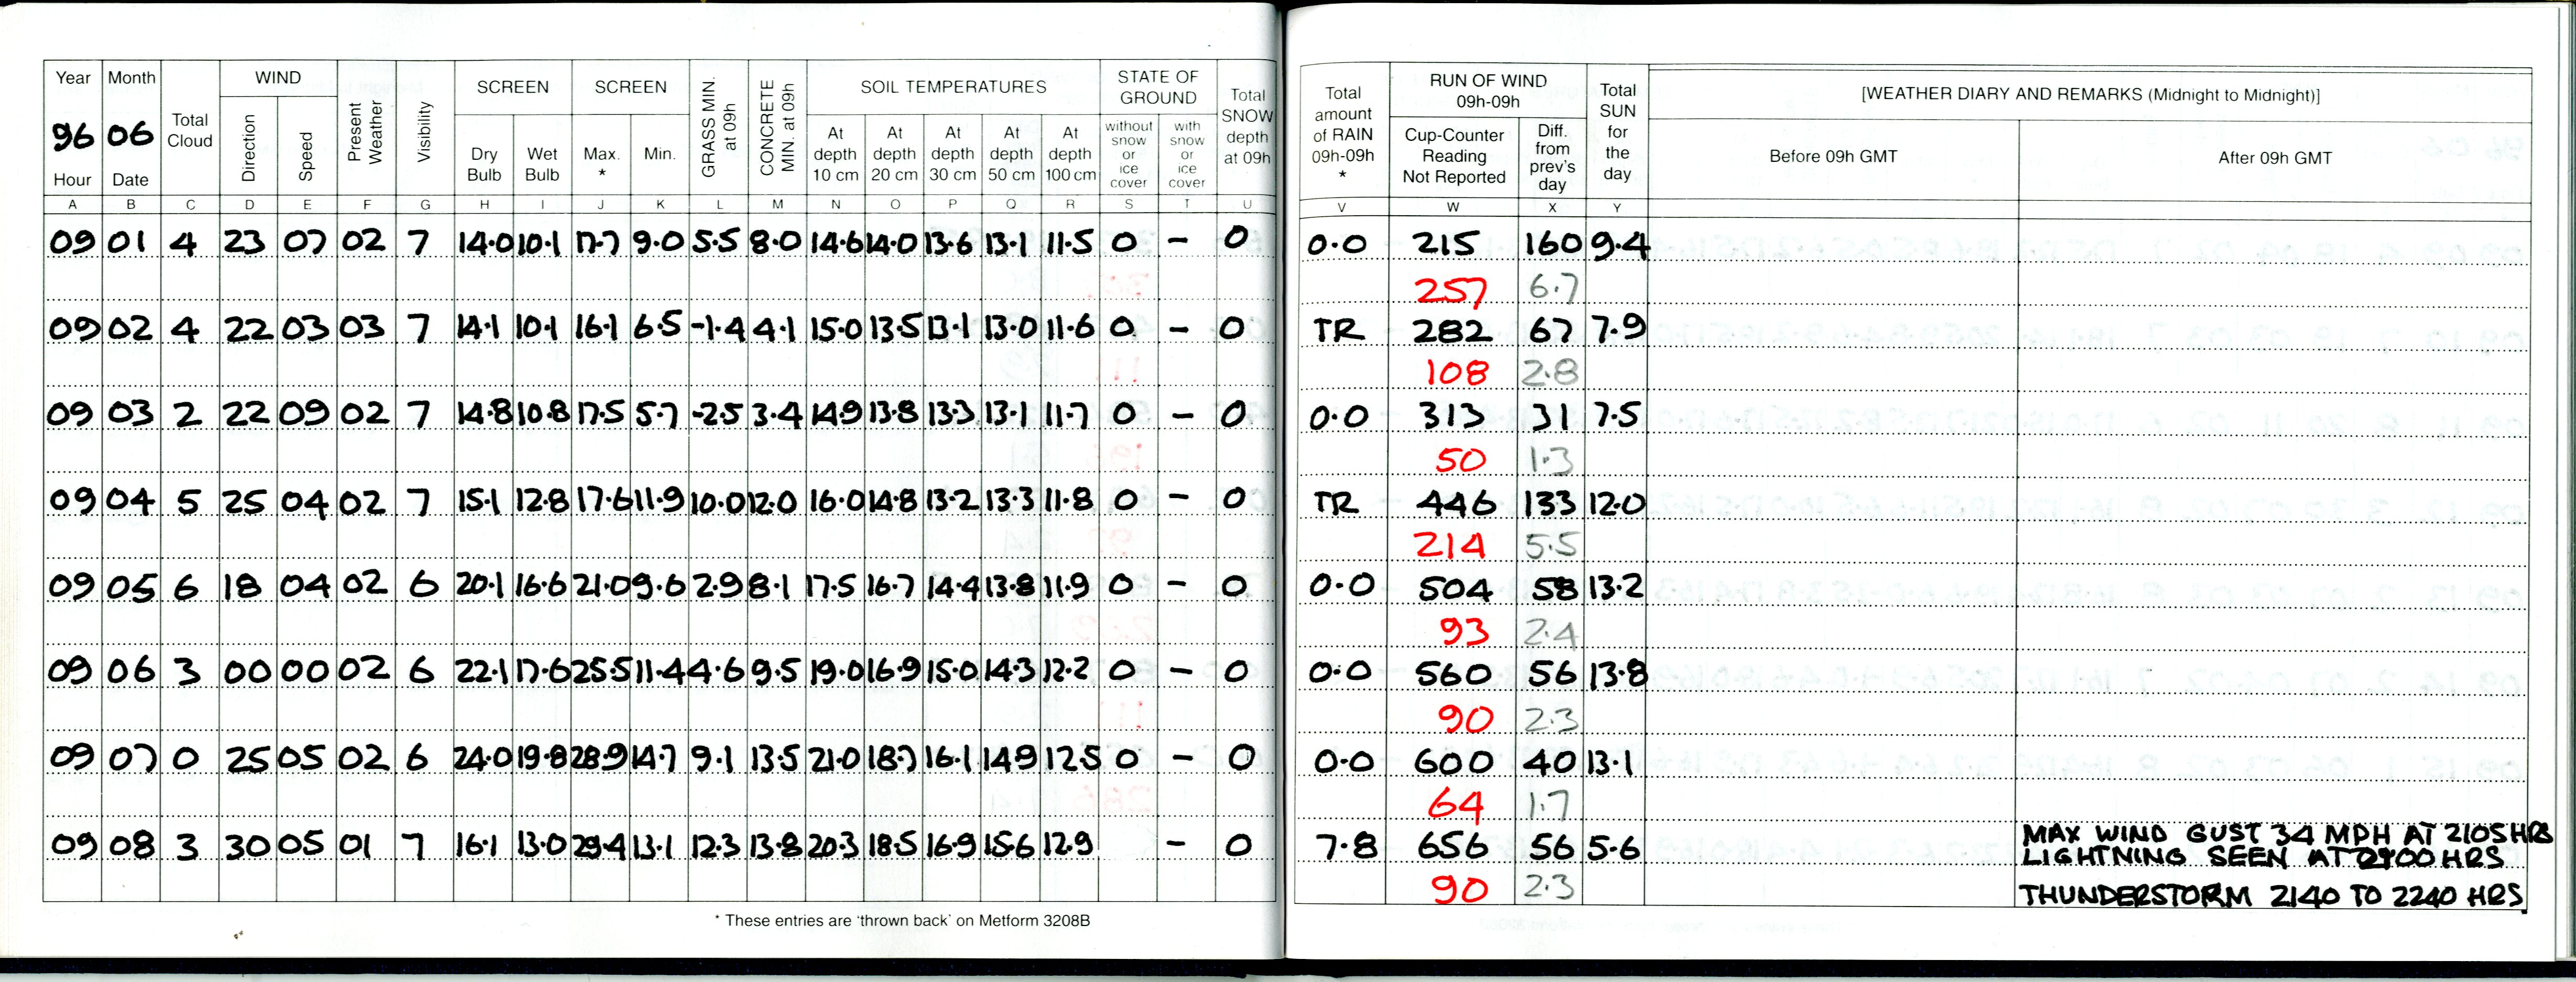 Year Month Total Cloud WIND Present Weather Visibility SCREEN SCREEN GRASS MIN. at 09h CONCRETE MIN. at 09h SOIL TEMPERATURES STATE OF GROUND Total SNOW depth at 09h Total amount of RAIN 09h-09h * RUN OF WIND 09h-09h Total SUN for the day [WEATHER DIARY AND REMARKS (Midnight to Midnight)]
96 06
Hour Date Direction Speed Dry Bulb Wet Bulb Max. * Min. At depth 10 cm At depth 20 cm At depth 30 cm At depth 50 cm At depth 100 cm without snow or ice cover with snow or ice cover Cup-Counter Reading Not Reported Diff. from prev's day Before 09h GMT After 09h GMT
A B C D E F G H I J K L M N O P Q R S T U V W X Y
09 01 4 23 07 02 7 14.0 10.1 17.7 9.0 5.5 8.0 14.6 14.0 13.6 13.1 11.5 0 - 0 0.0 215 160 9.4
257 6.7
09 02 4 22 03 03 7 14.1 10.1 16.1 6.5 -1.4 4.1 15.0 13.5 13.1 13.0 11.6 0 - 0 TR 282 67 7.9
108 2.8
09 03 2 22 09 02 7 14.8 10.8 17.5 5.7 -2.5 3.4 14.9 13.8 13.3 13.1 11.7 0 - 0 0.0 313 31 7.5
50 1.3
09 04 5 25 04 02 7 15.1 12.8 17.6 11.9 10.0 12.0 16.0 14.8 13.2 13.3 11.8 0 - 0 TR 446 133 12.0
214 5.5
09 05 6 18 04 02 6 20.1 16.6 21.0 9.6 2.9 8.1 17.5 16.7 14.4 13.8 11.9 0 - 0 0.0 504 58 13.2
93 2.4
09 06 3 00 00 02 6 22.1 17.6 25.5 11.4 4.6 9.5 19.0 16.9 15.0 14.3 12.2 0 - 0 0.0 560 56 13.8
90 2.3
09 07 0 25 05 02 6 24.0 19.8 28.9 14.7 9.1 13.5 21.0 18.7 16.1 14.9 12.5 0 - 0 0.0 600 40 13.1
64 1.7
09 08 3 30 05 01 7 16.1 13.0 29.4 13.1 12.3 13.8 20.3 18.5 16.9 15.6 12.9 - 0 7.8 656 56 5.6 MAX WIND GUST 34 MPH AT 2105 HRS
LIGHTNING SEEN AT HRS
90 2.3 THUNDERSTORM 2140 TO 2240 HRS
* These entries are 'thrown back' on Metform 3208B